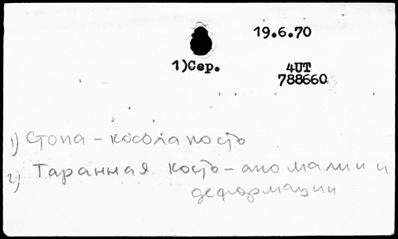 19.6.70
1)Сер. 4UT
788660
1) Стопа - косолапость
2) Таранная кость - аномалии и
деформации